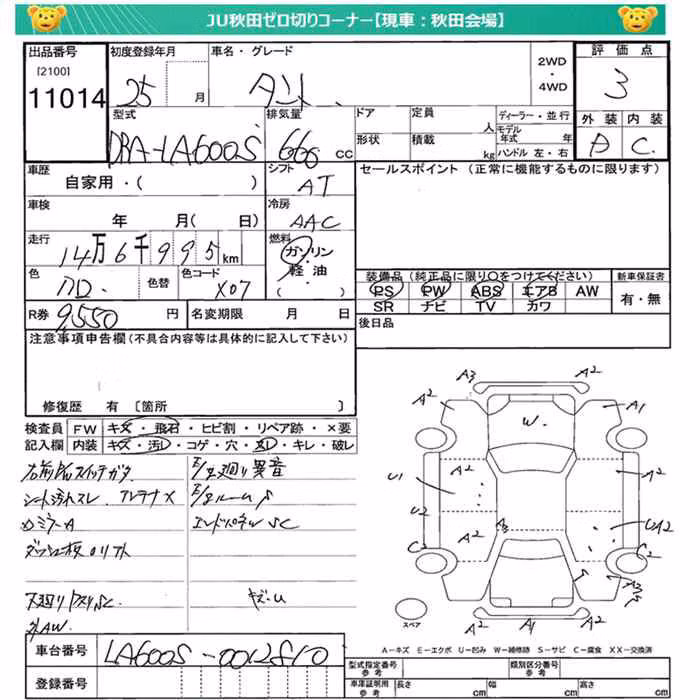 JU秋田ゼロ切りコーナー【現車：秋田会場】
出品番号 初度登録年月 車名・グレード 2WD ・ 4WD 評価点
[2100]
11014 25 月 3
型式 排気量 ドア 定員 人 ディーラー・並行 外装 内装
モデル年式 年
DBA-LA600S 660 cc 形状 積載 kg ハンドル 左・右 D C
車歴 シフト セールスポイント（正常に機能するものに限ります）
自家用・( ) AT
車検 冷房
年 月( 日) AAC
走行 燃料
14万6千995km ガソリン
色 色替 色コード 軽油
X07 ( )
装備品（純正品に限り○をつけてください） 新車保証書
PS PW ABS エアB AW 有・無
SR ナビ TV カワ
R券 9,550 円 名変期限 月 日 後日品
注意事項申告欄（不具合内容等は具体的に記入して下さい）
修復歴 有 [箇所 ]
検査員 FW キズ・飛石・ヒビ割・リペア跡・×要
記入欄 内装 キズ・汚レ・コゲ・穴・スレ・キレ・破レ
E/g廻り異音
シート汚れスレ アンテナX
E/gルームS
ミラーA エンドパネルSC
下廻り SC キズ・U
外AW
A3 A2 A2 A1
W
A2 A2
U1
U2 A2 A3 UA2
C2 C2
S
A2 A1 A2
スペア
A－キズ E－エクボ U－凹み W－補修跡 S－サビ C－腐食 XX－交換済
車台番号 LA600S-0012810
登録番号
型式指定番号 参考 類別区分番号 参考
車庫証明用 参考 長さ cm 幅 cm 高さ cm